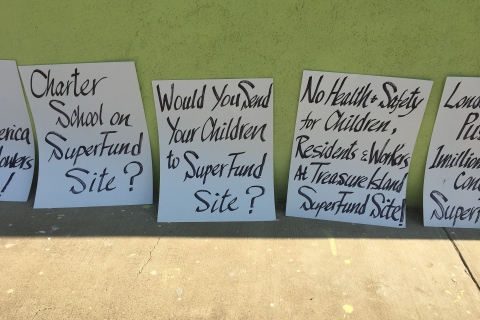 !
Charter
School on
SuperFund
Site?
Would You Send
Your Children
to SuperFund
Site?
No Health + Safety
for Children,
Residents & Workers
At Treasure Island
SuperFund Site!